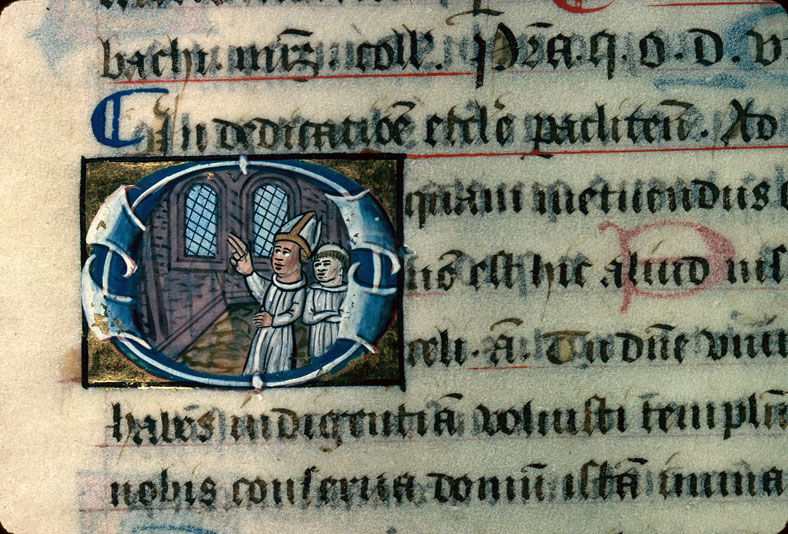 bachu. mr̃z. coll'. Pr̃a. q. o. D. v
In dedicatiõe eccl'e pacliteñ. Ad
O quam metuendus e
nõ est hic aliud nis
celi. ã. Tu dñe uniu
habẽs indigentiã voluisti templũ
nobis conserua domũ istã imma